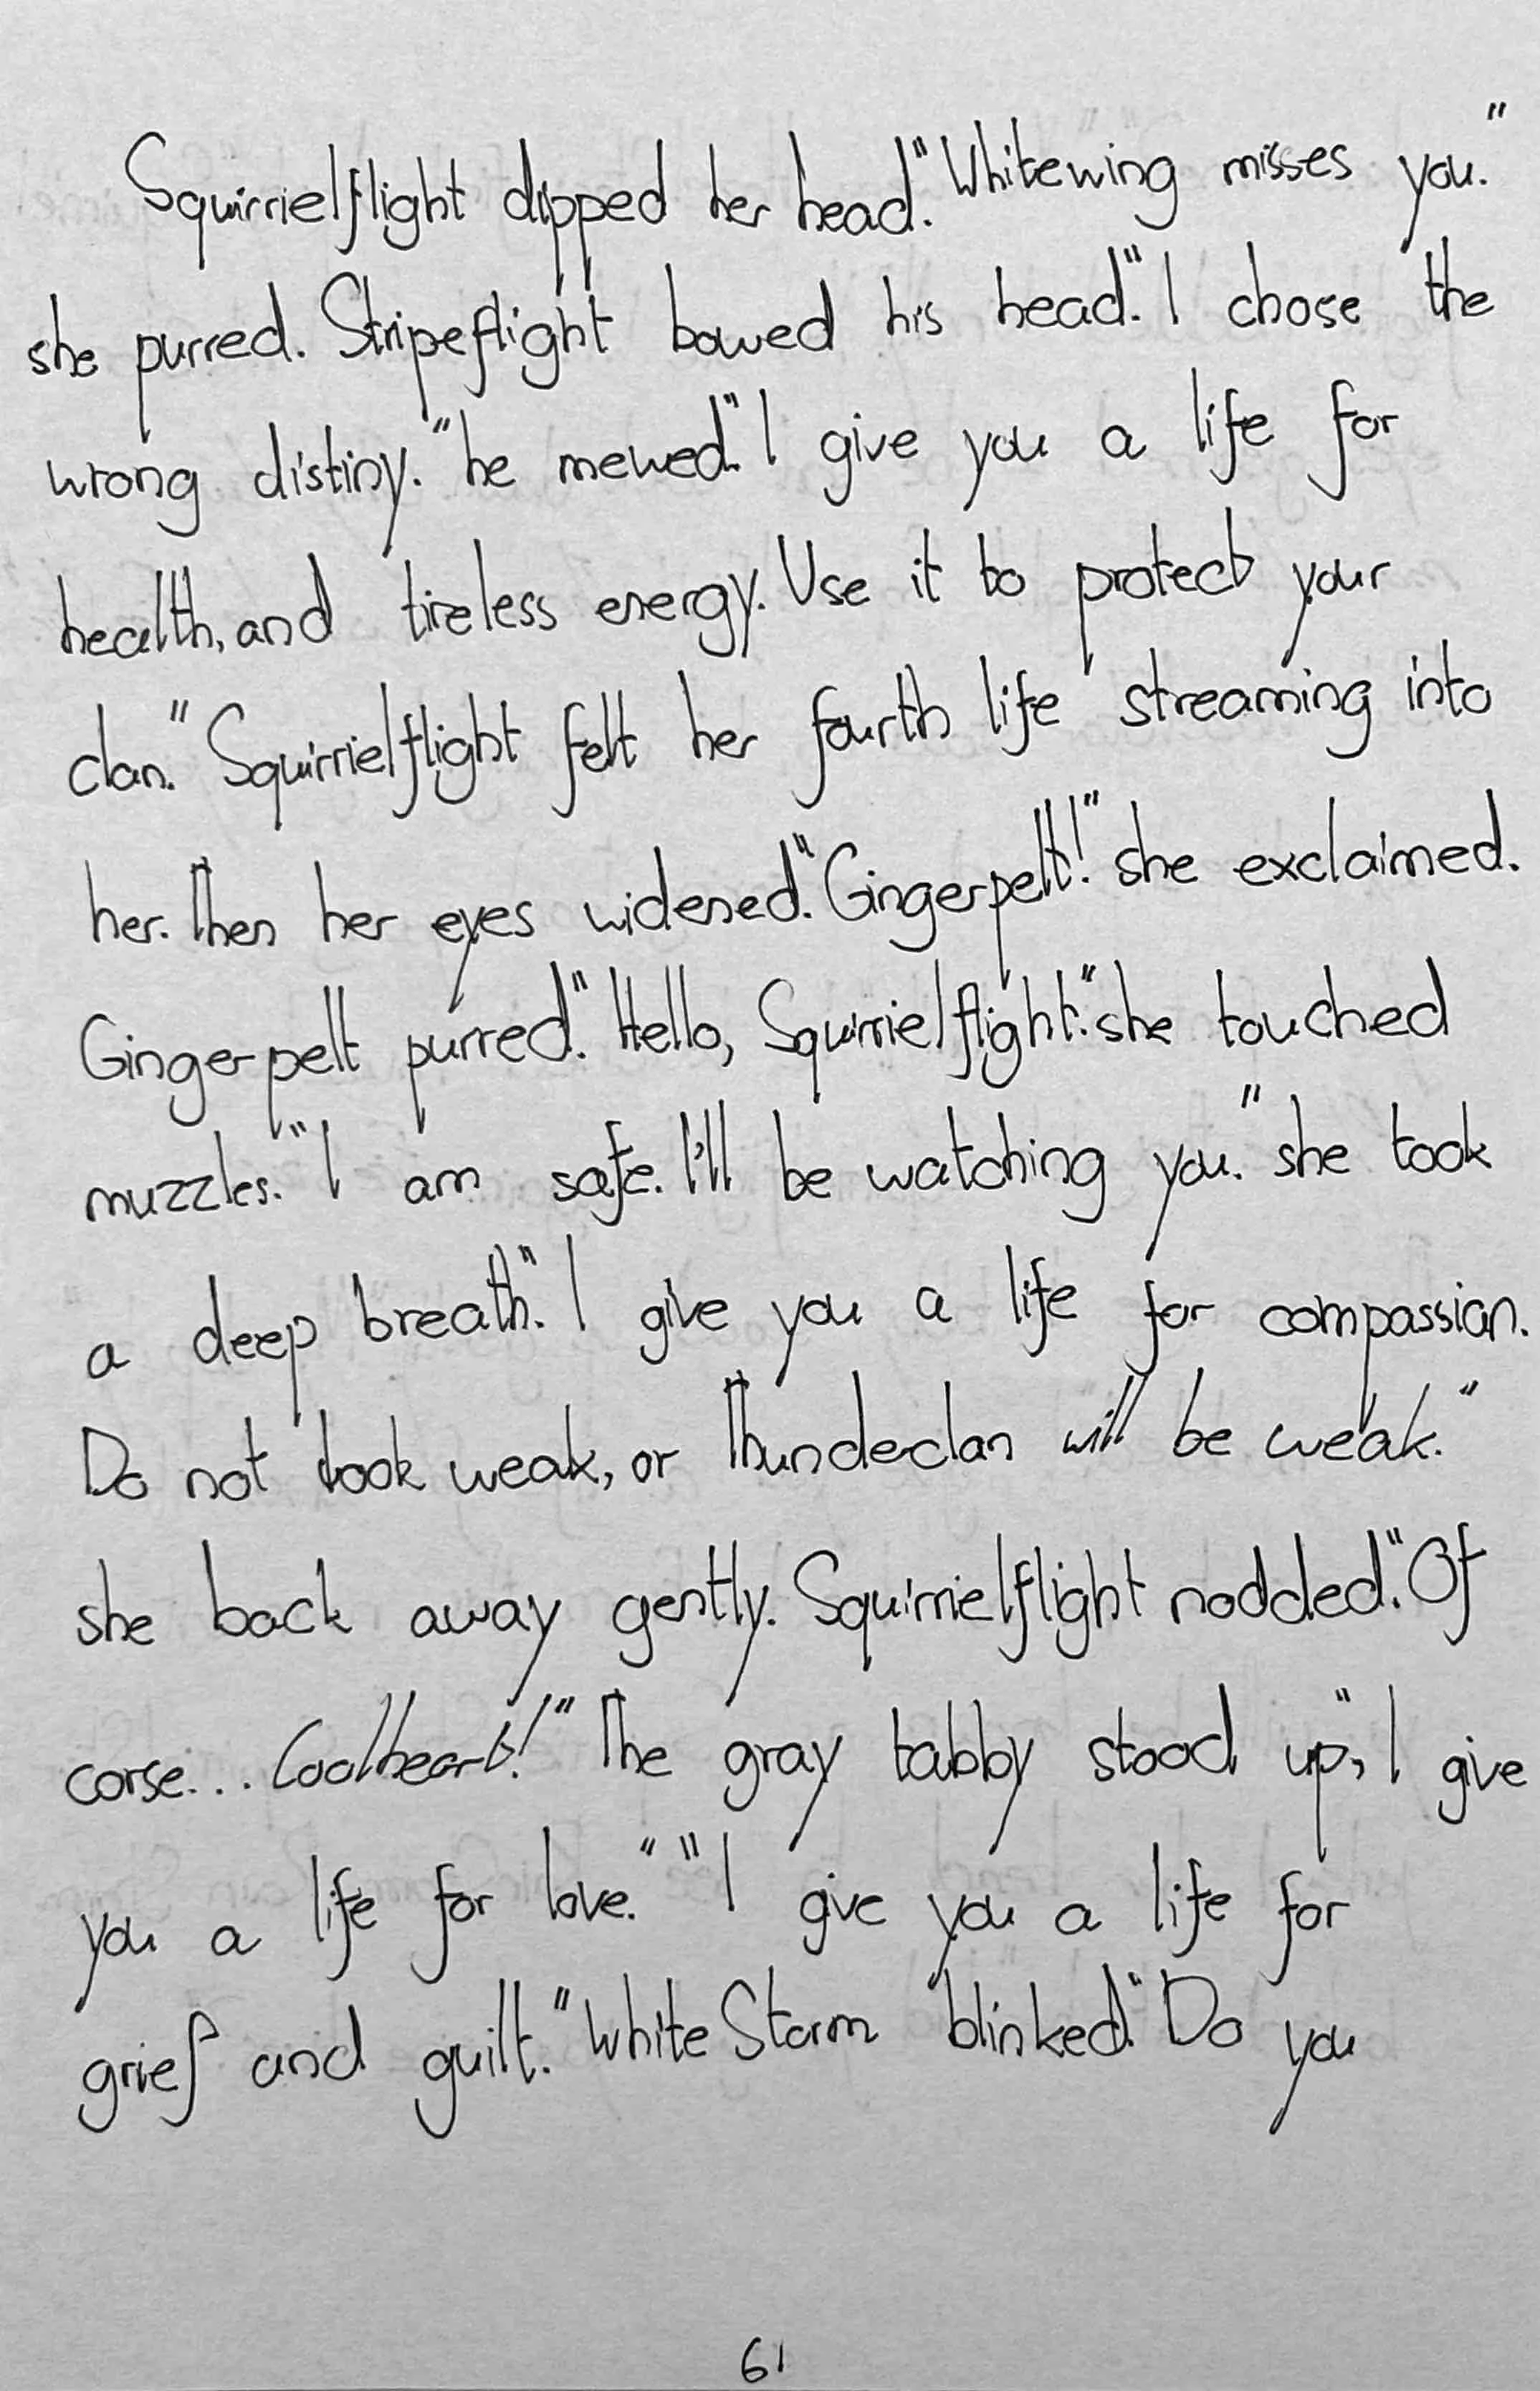 Squirrielflight dipped her head. "Whitewing misses you."
she purred. Stripeflight bowed his head. "I chose the
wrong distiny." he mewed. "I give you a life for
health, and tireless energy. Use it to protect your
clan." Squirrielflight felt her fourth life streaming into
her. Then her eyes widened. "Gingerpelt!" she exclaimed.
Gingerpelt purred. "Hello, Squirrielflight." she touched
muzzles. "I am safe. I'll be watching you." she took
a deep breath. "I give you a life for compassion.
Do not look weak, or Thunderclan will be weak."
she back away gently. Squirrielflight nodded. "Of
corse... Coolheart!" The gray tabby stood up, "I give
you a life for love." "I give you a life for
grief and guilt." White Storm blinked. "Do you
61